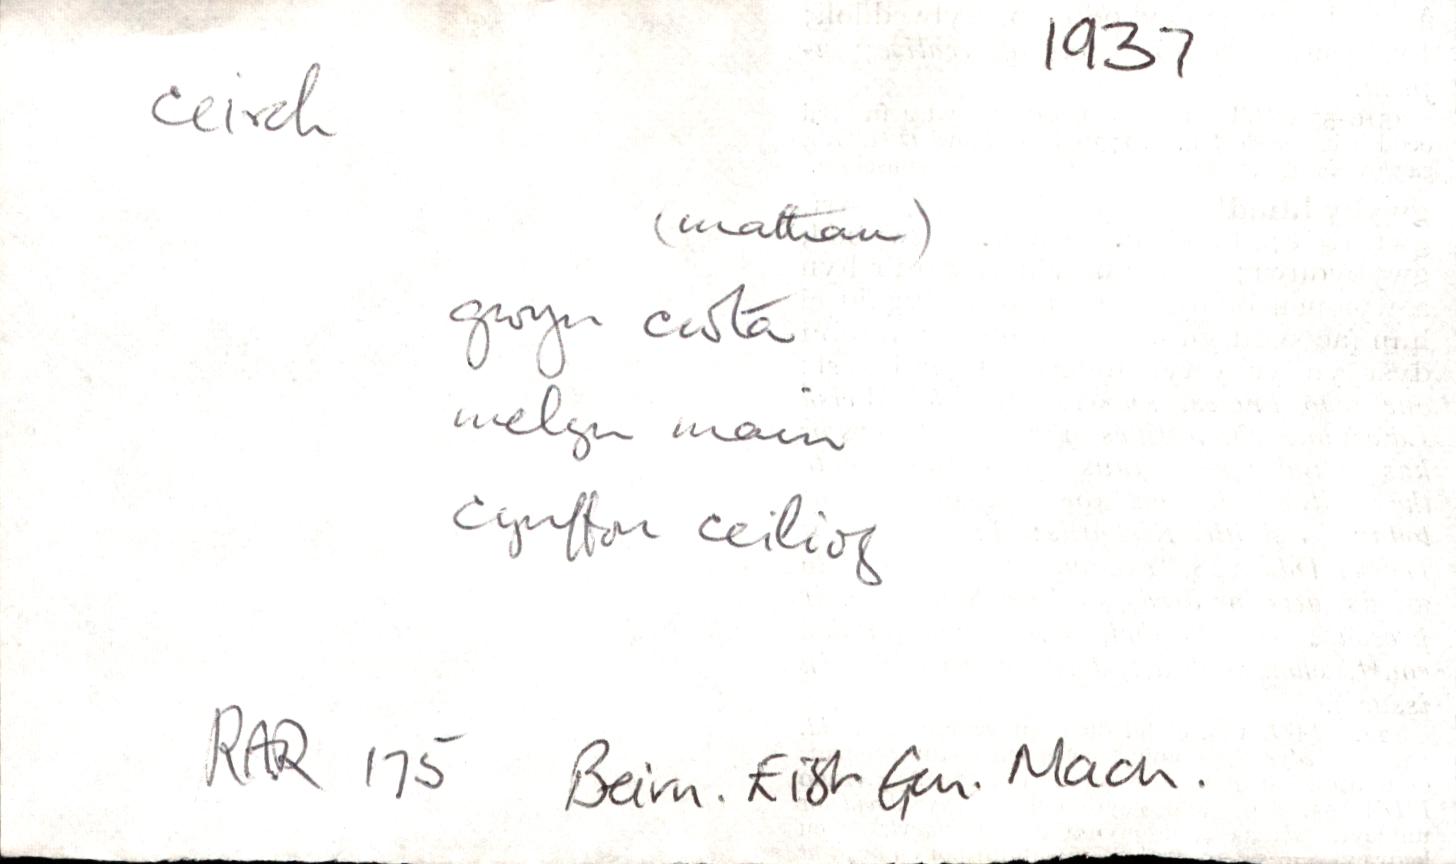 1937
ceirch
(mathau)
gwyn cwta
melyn main
cynffon ceiliog
RAR 175 Beirn. Eist Gen. Mach.